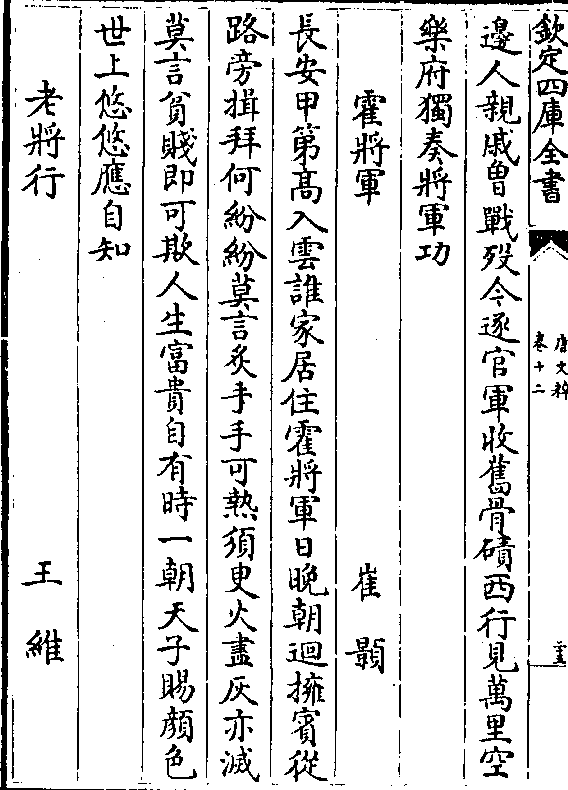 欽定四庫全書
唐文粹
卷十二
二十五
邊人親戚曽戰歿今逐官軍收舊骨磧西行見萬里空
樂府獨奏將軍功
霍將軍 崔顥
長安甲第髙入雲誰家居住霍將軍日晚朝迴擁賓從
路旁揖拜何紛紛莫言炙手手可熱須臾火盡灰亦滅
莫言貧賤即可欺人生富貴自有時一朝天子賜顔色
世上悠悠應自知
老將行 王維